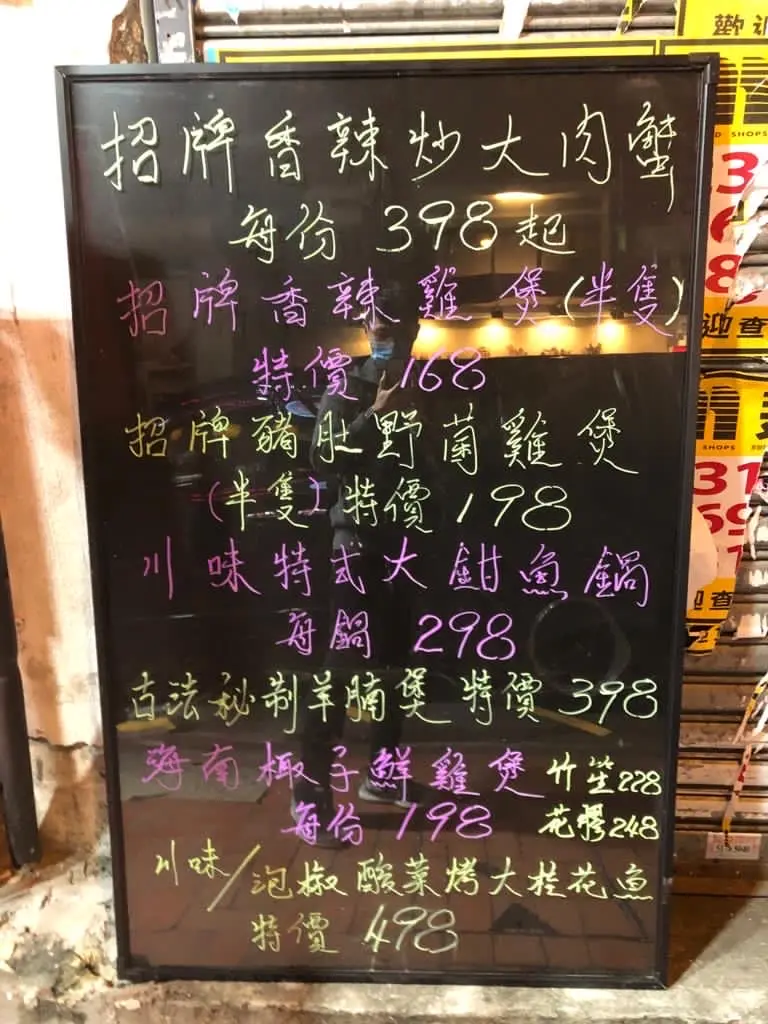 招牌香辣炒大肉蟹
每份 398起
招牌香辣雞煲(半隻)
特價 168
招牌豬肚野菌雞煲
(半隻) 特價 198
川味特式大鉗魚鍋
每鍋 298
古法秘制羊腩煲 特價 398
海南椰子鮮雞煲 竹笙228
每份 198 花膠248
川味/泡椒酸菜烤大桂花魚
特價 498
歡迎
SHOPS
迎查
SHOPS
迎查